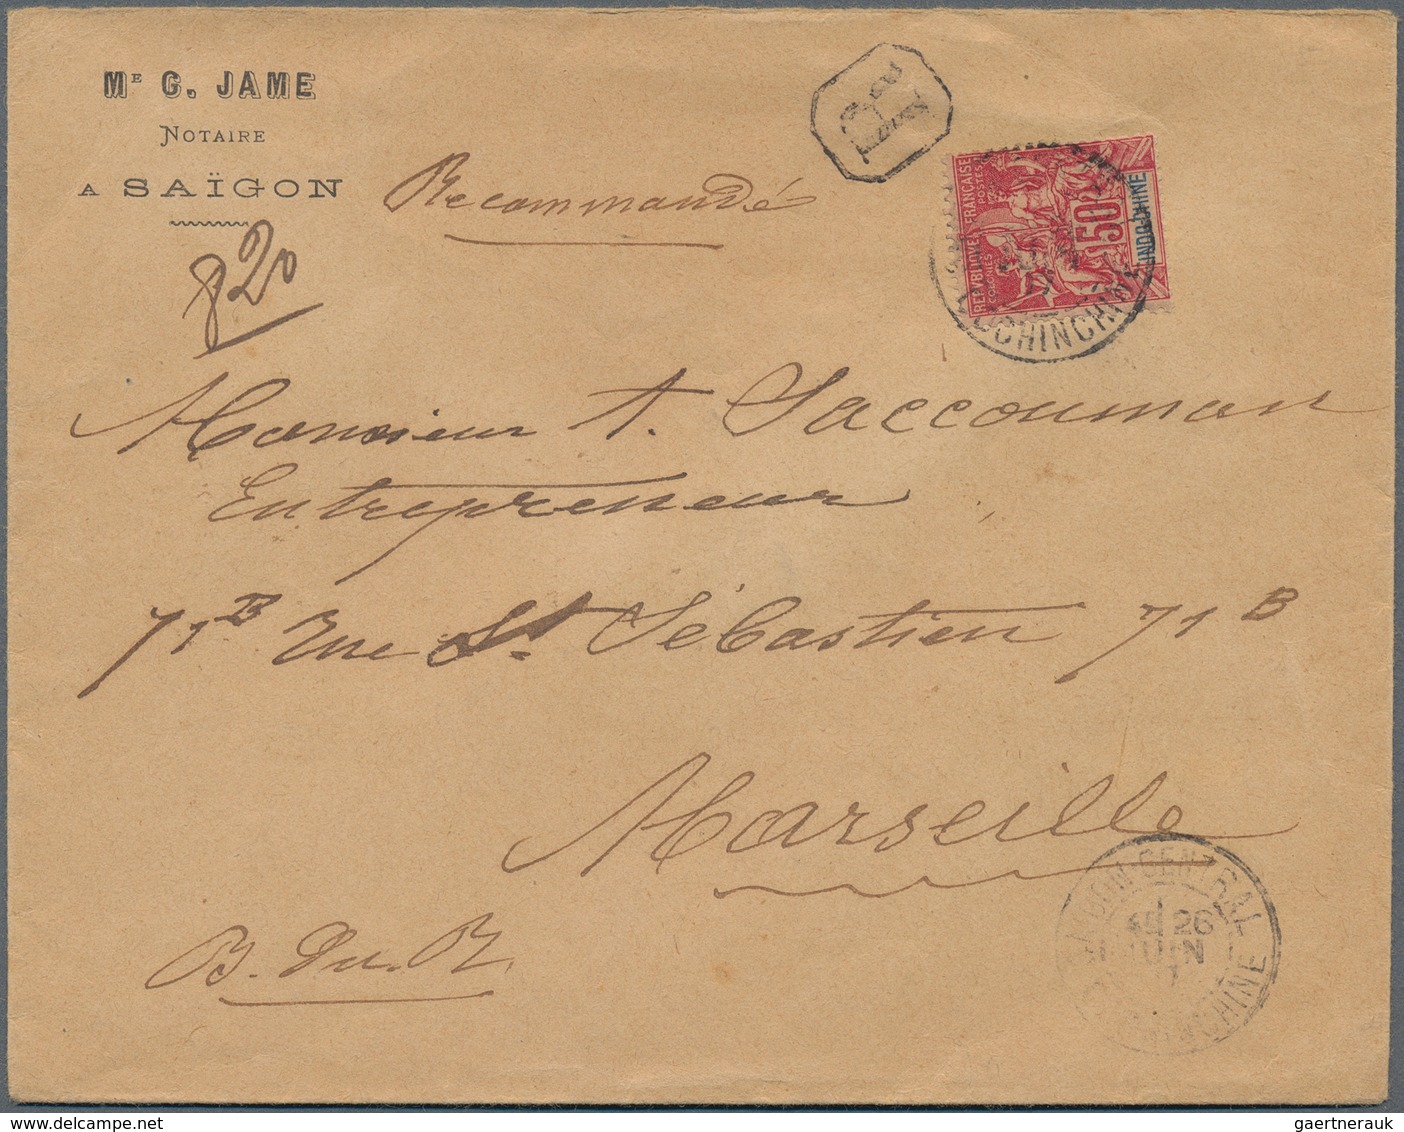 Mᴱ G. JAME
NOTAIRE
A SAÏGON
820
Recommandé
R
RÉPUBLIQUE FRANÇAISE
COLONIES POSTES
50
INDO-CHINE
COCHINCHINE
Monsieur A. Jaccouman
Entrepreneur
71ᴮ rue St. Sébastien 71 B
Marseille
B. du. R
SAIGON CENTRAL
26
JUIN
COCHINCHINE
gaertnerauk